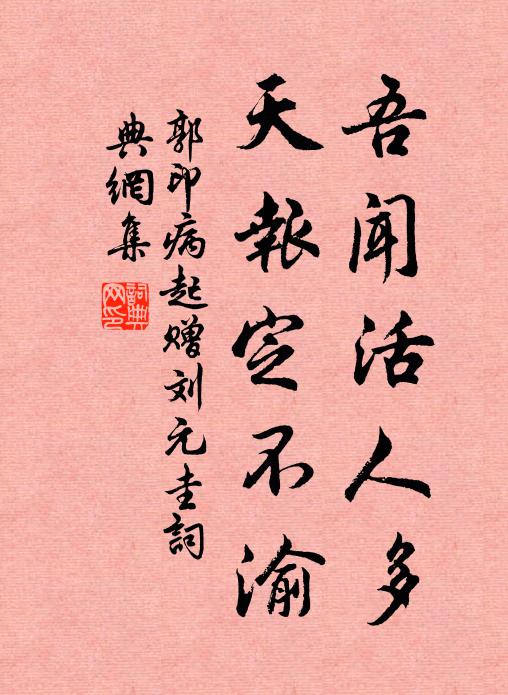 吾闻活人多
天報定不渝
郭印病起赠刘元圭詞
典網集
詞典网印